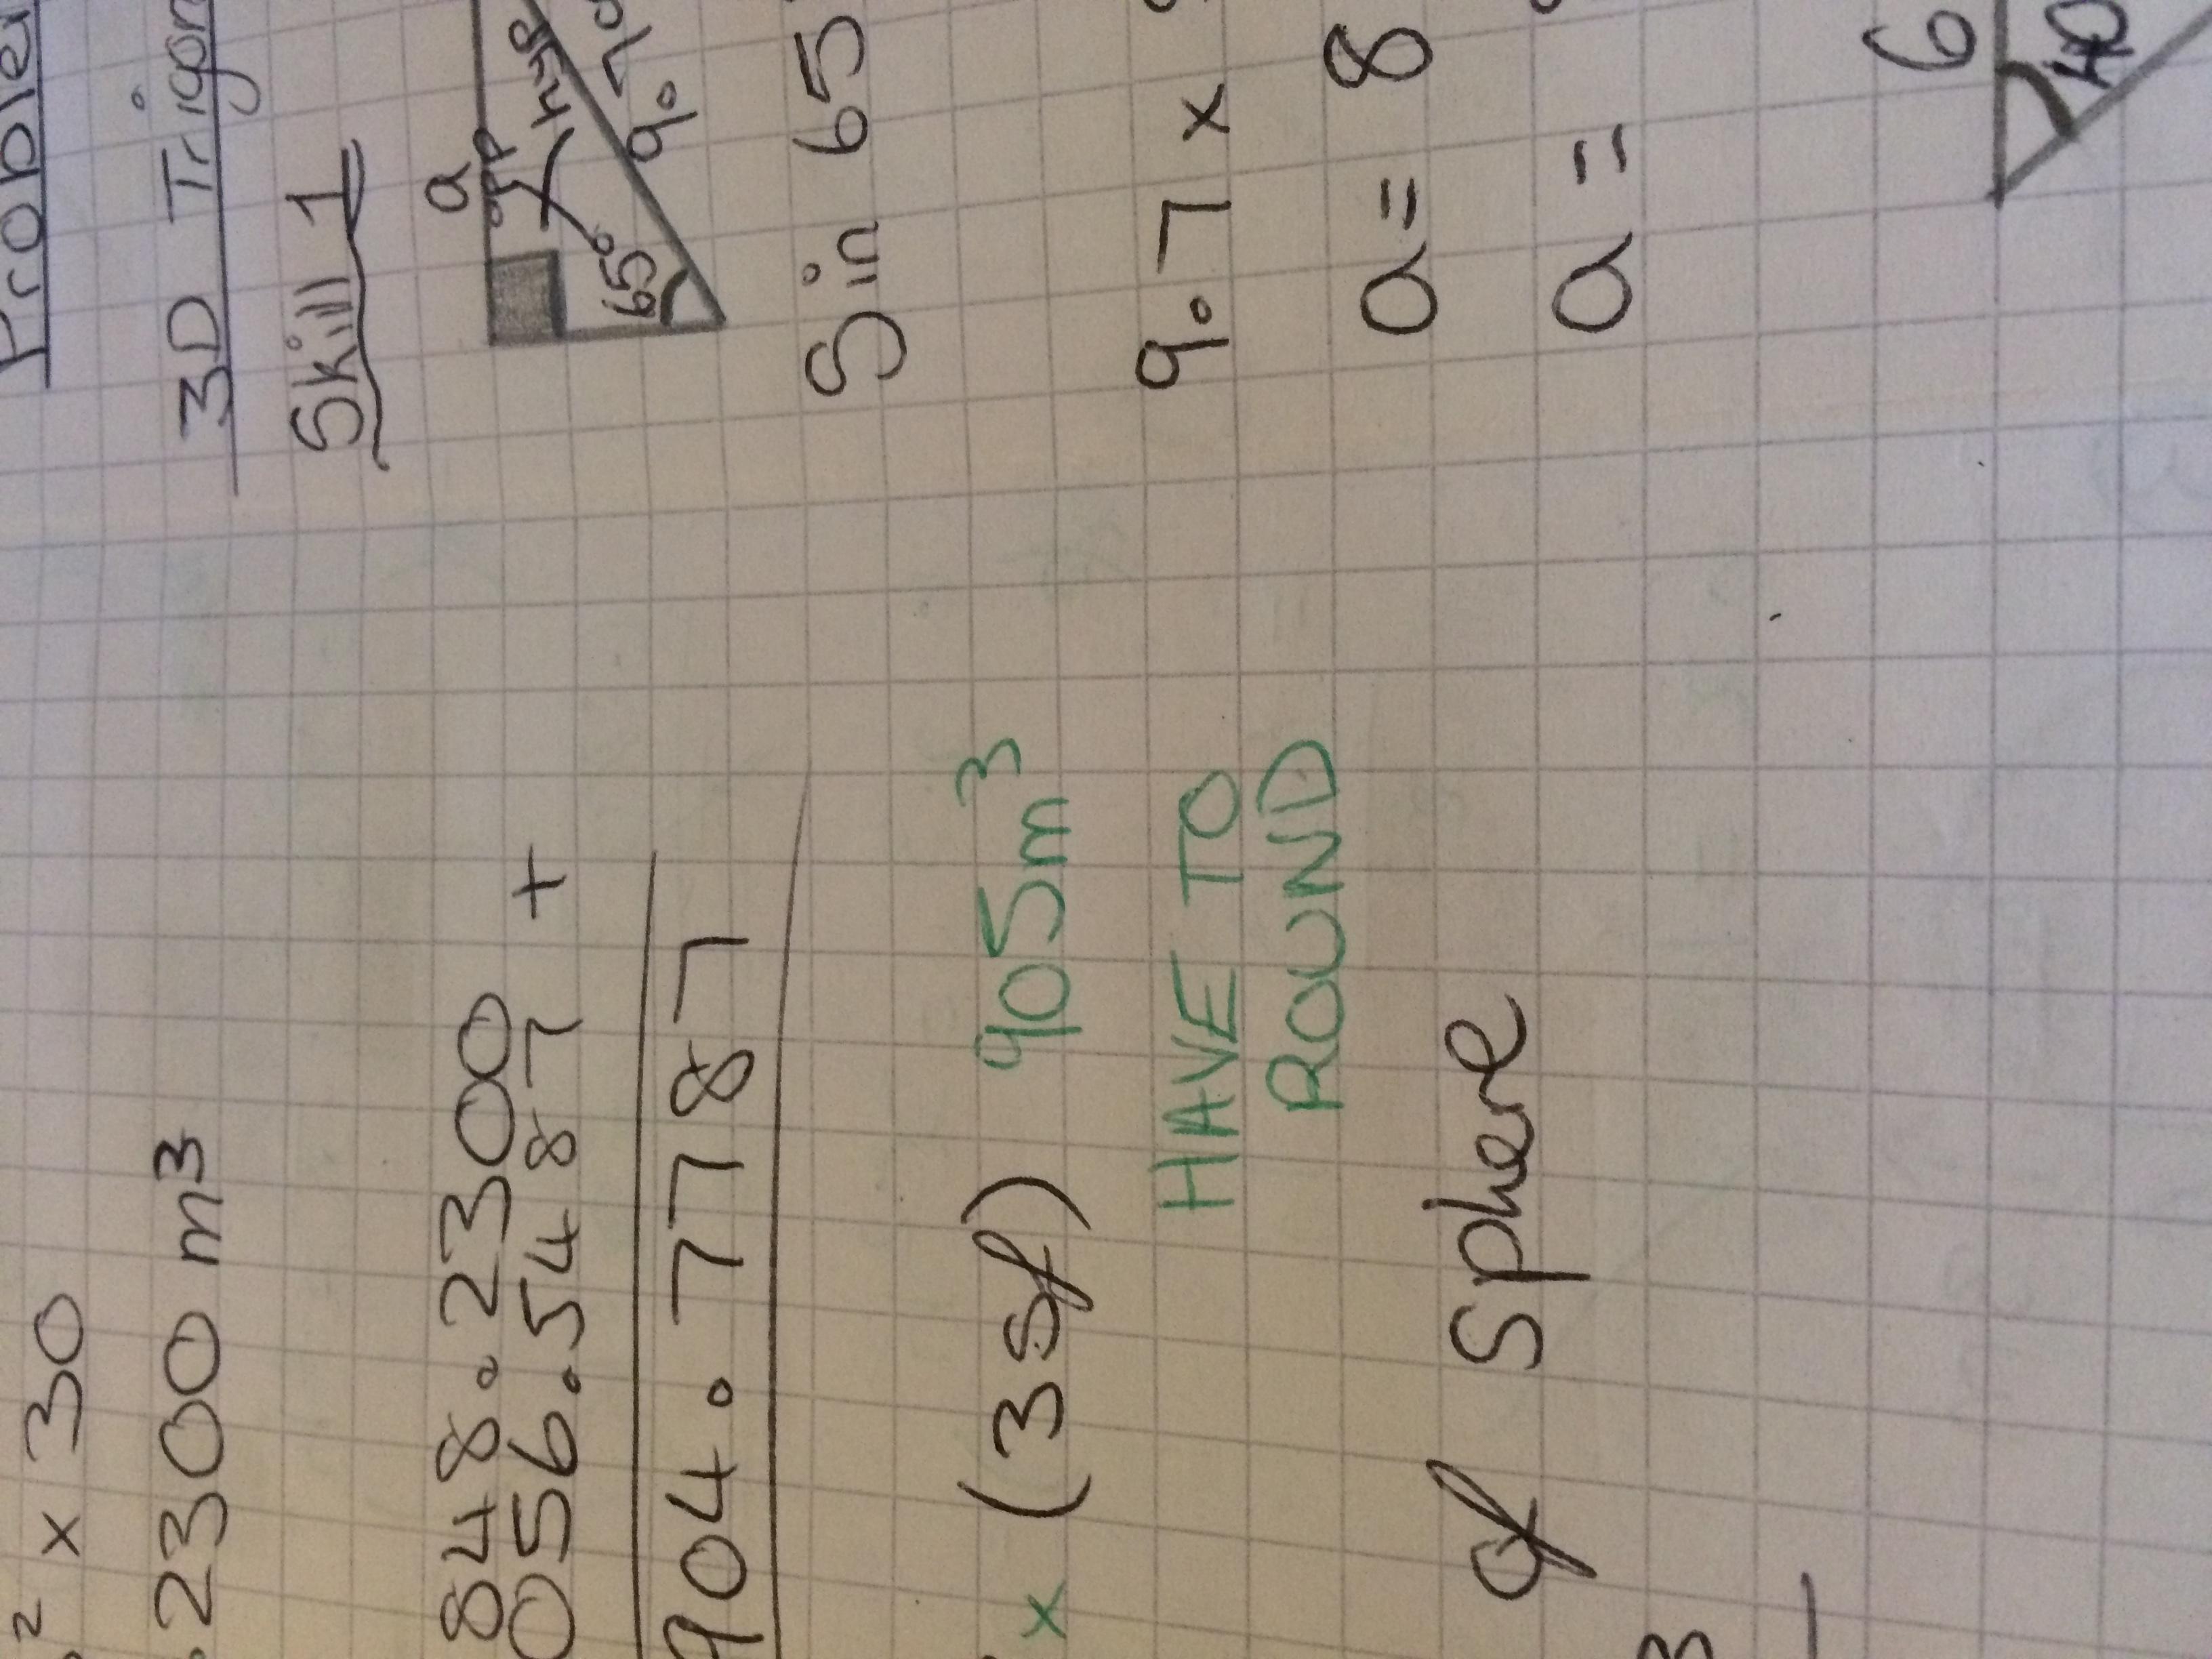 ² x 30
.2300 m³
848.2300
056.5487 +
904.7787
x (3sf) 905m³
HAVE TO
ROUND
of Sphere
3
3D Trigon
Skill 1
a
opp
hyp
9.7c
65°
Sin 65
9.7 x
a = 8
a =
6
40